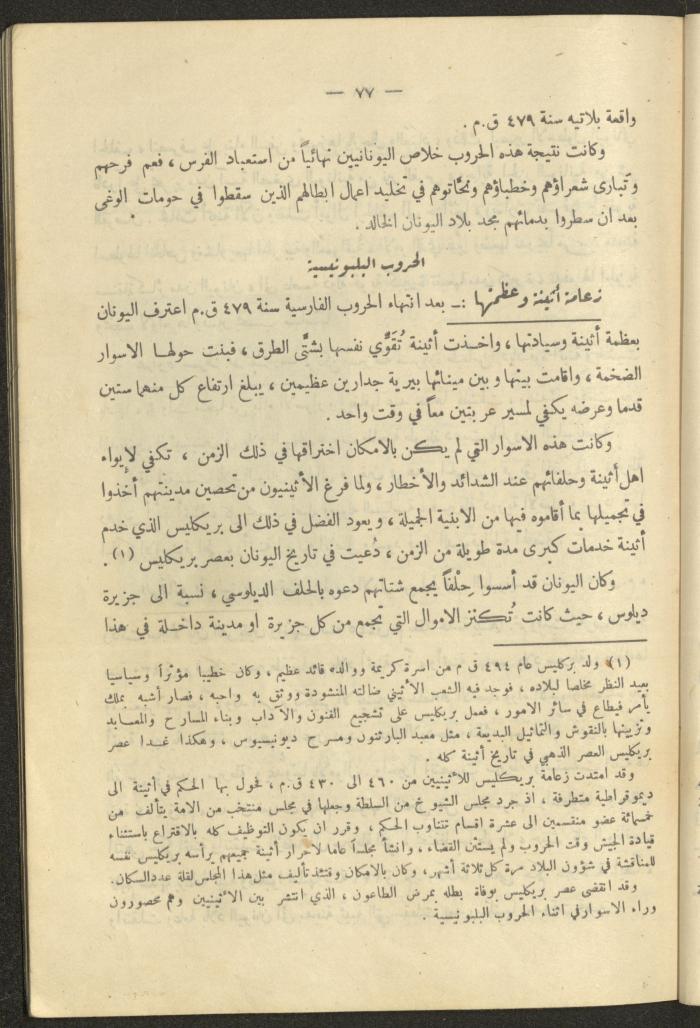 — ٧٧ —
واقعة بلاتيه سنة ٤٧٩ ق.م .
وكانت نتيجة هذه الحروب خلاص اليونانيين نهائياً من استعباد الفرس ، فعم فرحهم
وتبارى شعراؤهم وخطباؤهم ونحّاتوهم في تخليد اعمال ابطالهم الذين سقطوا في حومات الوغى
بعد ان سطروا بدمائهم مجد بلاد اليونان الخالد .
الحروب البلبونيسية
زعامة أثينة وعظمتها :ـ بعد انتهاء الحروب الفارسية سنة ٤٧٩ ق.م اعترف اليونان
بعظمة أثينة وسيادتها ، واخذت أثينة تُقَوِّي نفسها بشتَّى الطرق ، فبنت حولها الاسوار
الضخمة ، واقامت بينها وبين مينائها بيرية جدارين عظيمين ، يبلغ ارتفاع كل منهما ستين
قدما وعرضه يكفي لمسير عربتين معاً في وقت واحد .
وكانت هذه الاسوار التي لم يكن بالامكان اختراقها في ذلك الزمن ، تكفي لإيواء
اهل أثينة وحلفائهم عند الشدائد والأخطار ، ولما فرغ الأثينيون من تحصين مدينتهم أخذوا
في تجميلها بما أقاموه فيها من الابنية الجميلة ، ويعود الفضل في ذلك الى بريكليس الذي خدم
أثينة خدمات كبرى مدة طويلة من الزمن ، دُعيت في تاريخ اليونان بعصر بريكليس (١) .
وكان اليونان قد أسسوا حِلْفاً يجمع شتاتهم دعوه بالحلف الديلوسي ، نسبة الى جزيرة
ديلوس ، حيث كانت تُكنز الاموال التي تجمع من كل جزيرة او مدينة داخلة في هذا
(١) ولد بركليس عام ٤٩٤ ق م من اسرة كريمة ووالده قائد عظيم ، وكان خطيبا مؤثراً وسياسيا
بعيد النظر مخلصا لبلاده ، فوجد فيه الشعب الأثيني ضالته المنشودة ووثق به واحبه ، فصار أشبه بملك
يأمر فيطاع في سائر الامور ، فعمل بريكليس على تشجيع الفنون والآداب وبناء المسارح والمعابد
وتزيينها بالنقوش والتماثيل البديعة ، مثل معبد البارثنون ومسرح ديونيسيوس ، وهكذا غدا عصر
بريكليس العصر الذهبي في تاريخ أثينة كله .
وقد امتدت زعامة بريكليس للأثينيين من ٤٦٠ الى ٤٣٠ ق.م ، فحول بها الحكم في أثينة الى
ديموقراطية متطرفة ، اذ جرد مجلس الشيوخ من السلطة وجعلها في مجلس منتخب من الامة يتألف من
خمسمائة عضو منقسمين الى عشرة اقسام تتناوب الحكم ، وقرر ان يكون التوظيف كله بالاقتراع باستثناء
قيادة الجيش وقت الحروب ولم يستثن القضاء ، وانشأ مجلساً عاما لأحرار أثينة جميعهم يرأسه بريكليس نفسه
للمناقشة في شؤون البلاد مرة كل ثلاثة أشهر ، وكان بالامكان وقتئذ تأليف مثل هذا المجلس لقلة عدد السكان.
وقد انقضى عصر بريكليس بوفاة بطله بمرض الطاعون ، الذي انتشر بين الأثينيين وهم محصورون
وراء الاسوار في اثناء الحروب البلبونيسية .